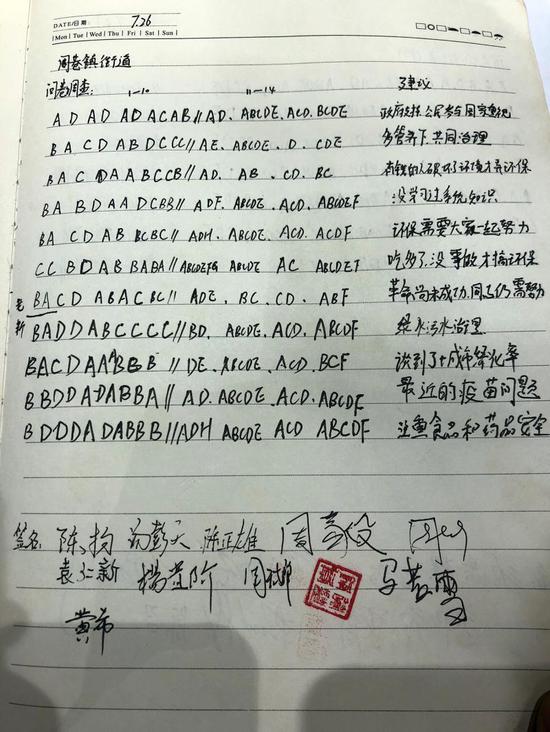 DATE/日期 7.26
Mon Tue Wed Thu Fri Sat Sun
周巷镇街道
问卷调查: 1-10 11-14 建议
A D A D A D A C A B // A D. A B C D E. A C D. B C D E 政府支持 公民参与 国家重视
B A C D A B D C C C // A E. A B C D E. D. C D E 多管齐下 共同治理
B A C D A A B C C B // A D. A B. C D. B C 有钱的人破坏了环境才弄环保
B A B D A A D C B B // A D F. A B C D E. A C D. A B C D E F 没学习过系统知识
B A C D A B B C B C // A D H. A B C D E. A C D. A C D F 环保需要大家一起努力
C C B D A B B A B A // A B C D E F G A B C D E A C A B C D E F 吃多了,没事做才搞环保
老 B A C D A B A C B C // A D E. B C. C D. A B F 革命尚未成功,同志仍需努力
新 B A D D A B C C C C // B D. A B C D E. A C D. A B C D F 绿水污水治理
B A C D A A B B B // D E. A B C D E. A C D. B C F 谈到了城市绿化率
B B D D A D A B B A // A D. A B C D E. A C D. A B C D F 最近的疫苗问题
B D D D A D A B B B // A D H A B C D E A C D A B C D F 注重食品和药品安全
签名: 陈正雄
袁仁新 杨
黄希